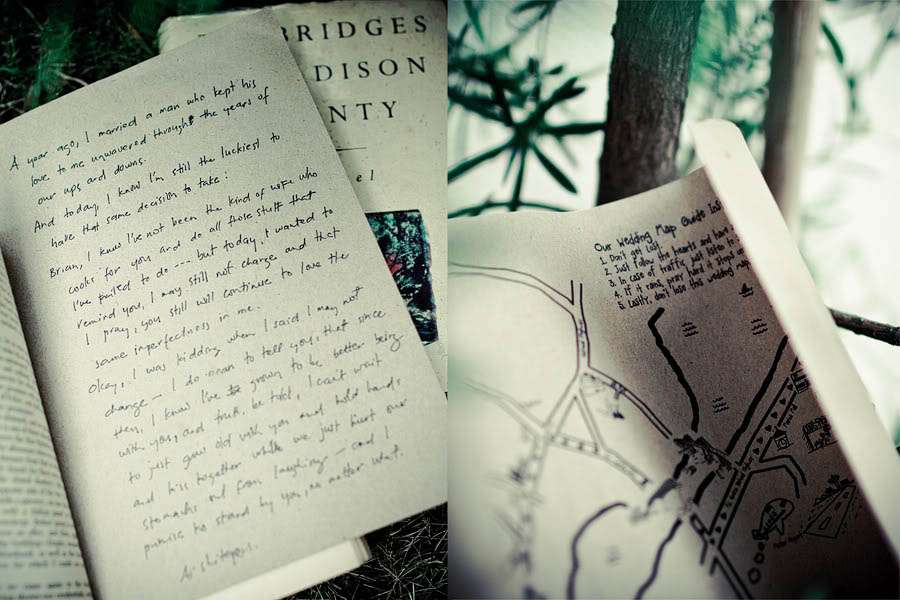 BRIDGES
DISON
NTY
el
A year ago, I married a man who kept his
love to me unwavered through the years of
our ups and downs.
And today, I know I'm still the luckiest to
have that same decision to take:
Brian, I know I've not been the kind of wife who
cooks for you and do all those stuff that
I've failed to do --- but today, I wanted to
remind you, I may still not change and that
I pray, you still will continue to love the
same imperfectness in me.
Okay, I was kidding when I said I may not
change — I do mean to tell you, that since
then, I knew I've grown to be better being
with you, and truth be told, I can't wait
to just grow old with you and hold hands
and kiss together while we just hurt our
stomachs out from laughing — and I
promise to stand by you, no matter what.
Our Wedding Map Guide Ins
1. Don't get lost.
2. Just follow the hearts and have
3. In case of traffic, just listen to
4. If it rains, pray hard it stops
5. Lastly, don't lose this wedding map